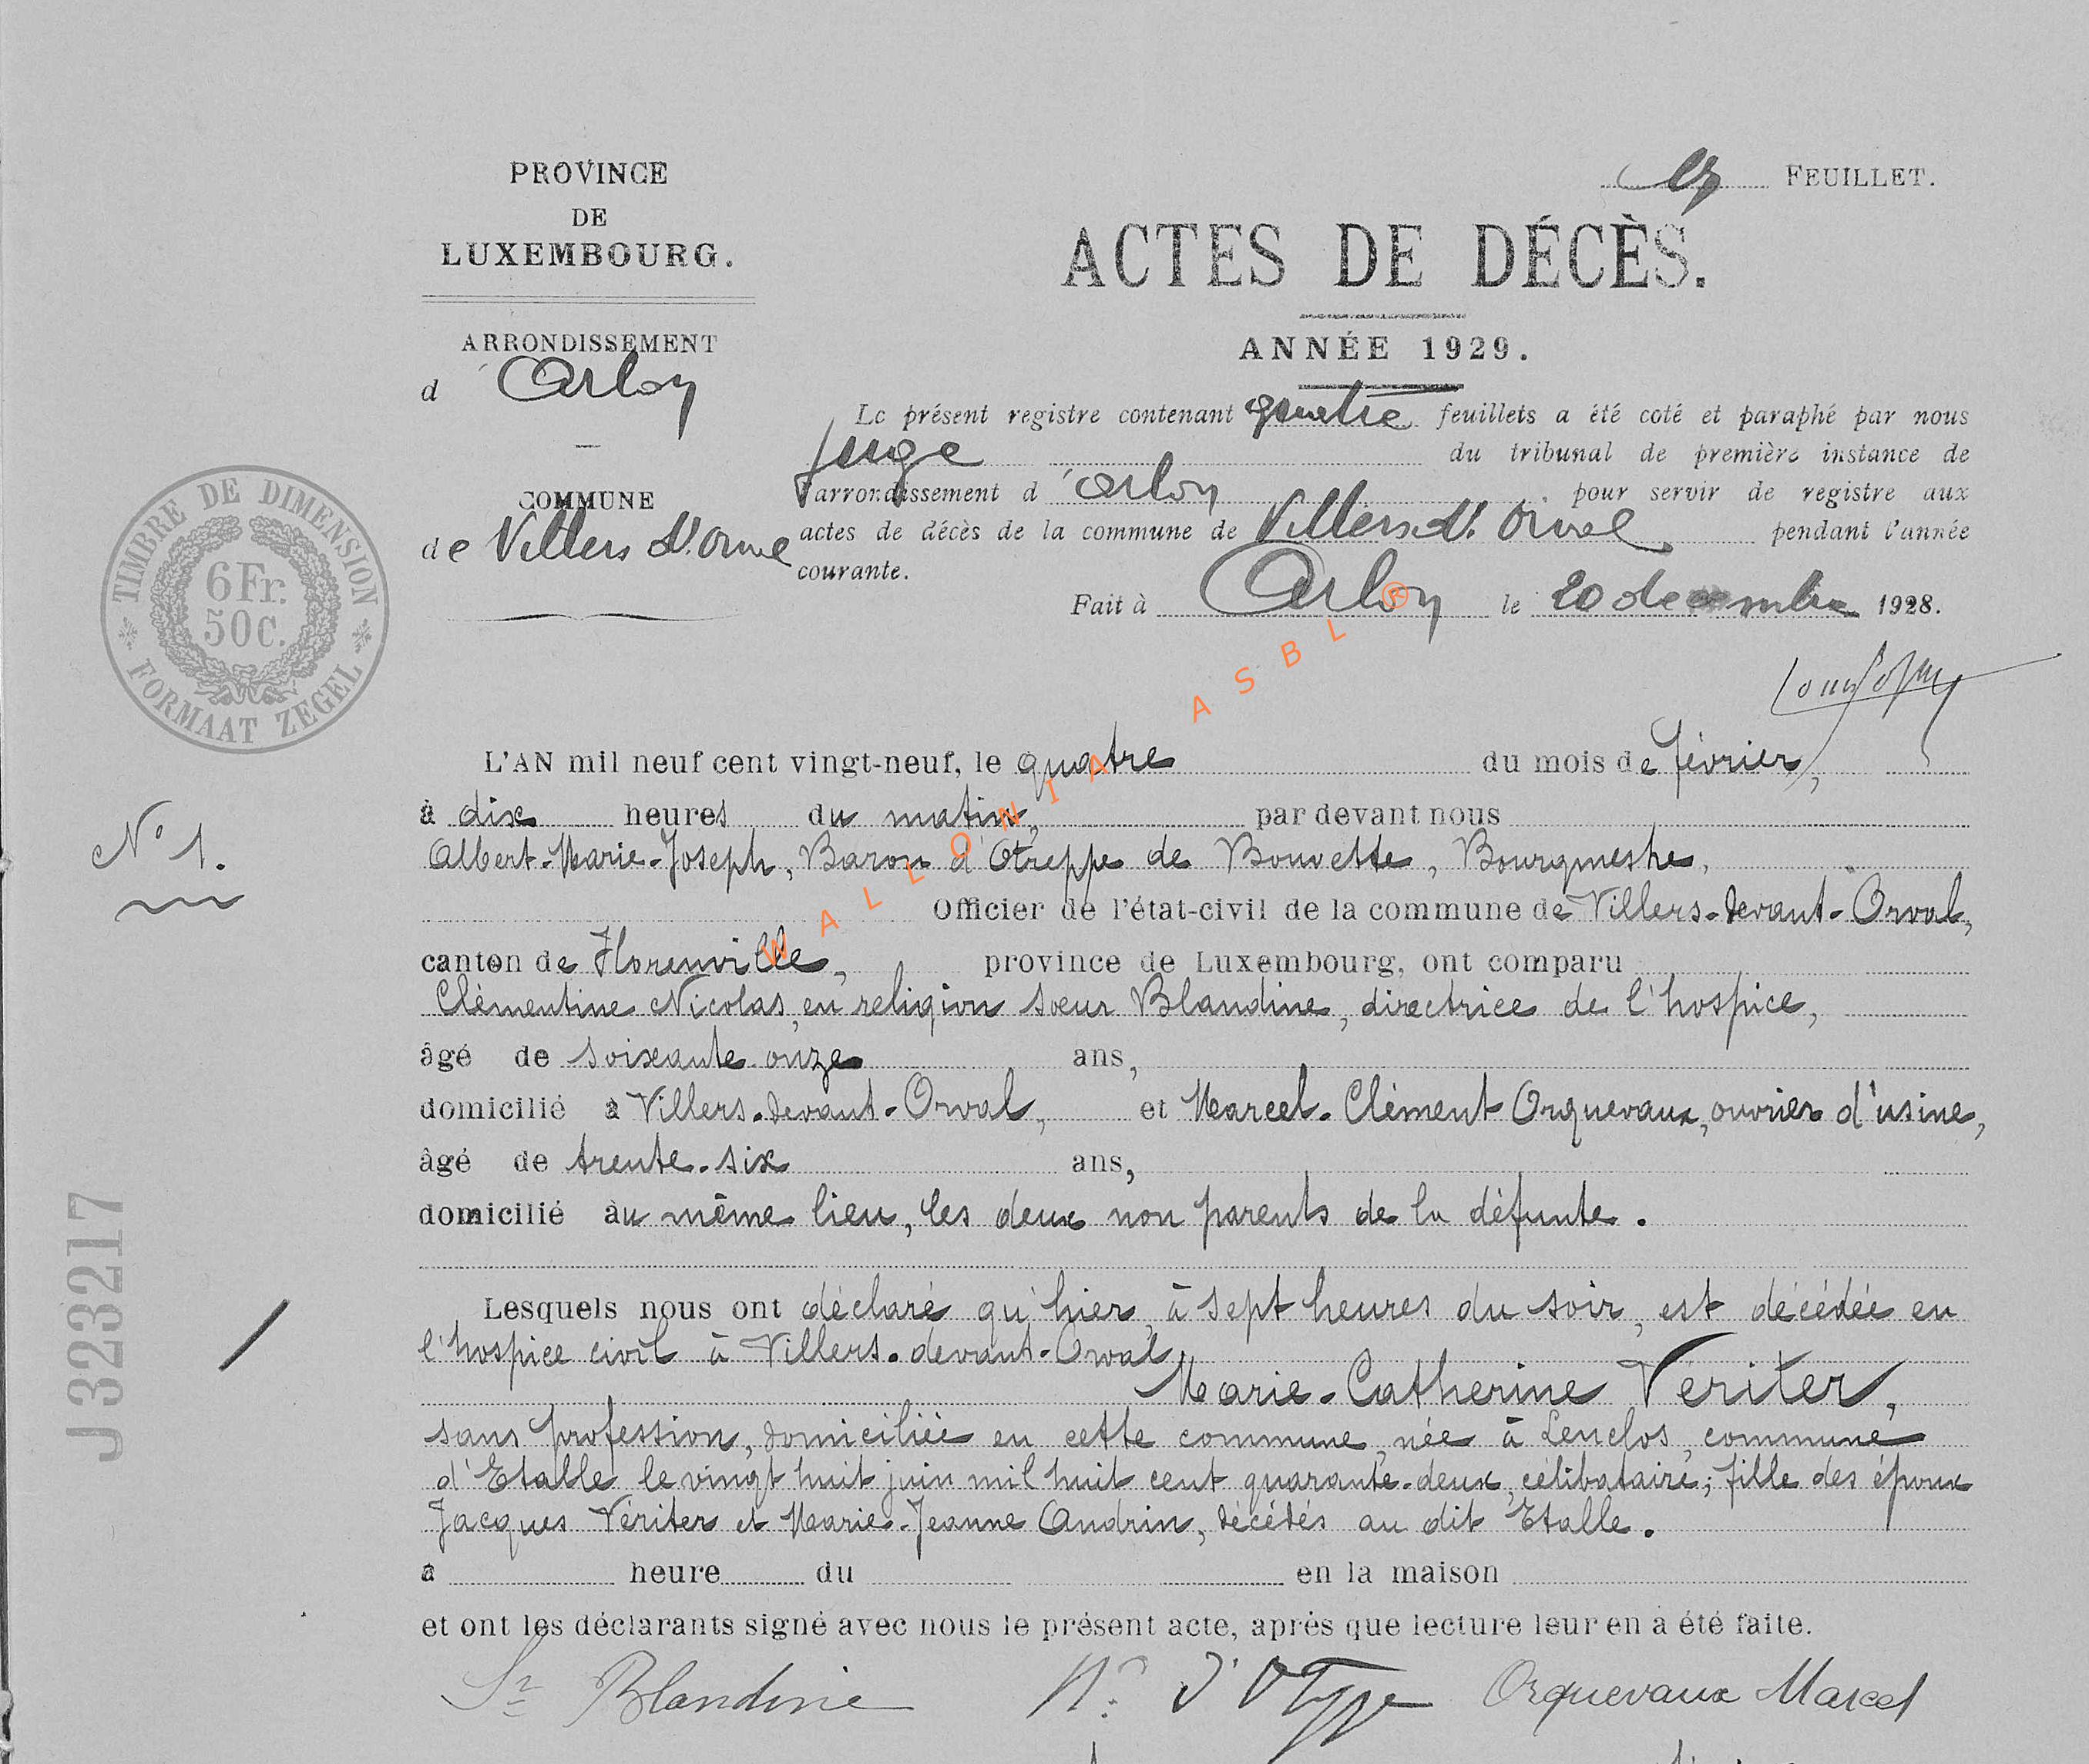 PROVINCE
DE
LUXEMBOURG.
ARRONDISSEMENT
d Arlon
COMMUNE
de Villers d't Orval
FEUILLET.
ACTES DE DÉCÈS.
ANNÉE 1929.
Le présent registre contenant quatre feuillets a été coté et paraphé par nous
Juge du tribunal de première instance de
l'arrondissement d'Arlon, pour servir de registre aux
actes de décès de la commune de Villers d't Orval pendant l'année
courante.
Fait à Arlon le 20 decembre 1928.
TIMBRE DE DIMENSION
6Fr.
50c.
FORMAAT ZEGEL
WALLONIA ASBL ®
L'AN mil neuf cent vingt-neuf, le quatre du mois de février,
à dix heures du matin, par devant nous
N° 1.
Albert-Marie-Joseph, Baron d'Otreppe de Bouvette, Bourgmestre,
Officier de l'état-civil de la commune de Villers-devant-Orval,
canton de Florenville, province de Luxembourg, ont comparu
Clémentine Nicolas, en religion sœur Blandine, directrice de l'hospice,
âgé de soixante-onze ans,
domicilié à Villers-devant-Orval, et Marcel-Clément Orquevaux, ouvrier d'usine,
âgé de trente-six ans,
domicilié au même lieu, les deux non parents de la défunte.
Lesquels nous ont déclaré qu'hier, à sept heures du soir, est décédée en
l'hospice civil à Villers-devant-Orval,
Marie-Catherine Vériter,
sans profession, domiciliée en cette commune, née à Lenclos, commune
d'Etalle le vingt huit juin mil huit cent quarante-deux, célibataire; fille des époux
Jacques Vériter et Marie-Jeanne Andrin, décédés au dit Etalle.
à heure du en la maison
et ont les déclarants signé avec nous le présent acte, après que lecture leur en a été faite.
Sr Blandine Bn d'Otreppe Orquevaux Marcel
J 323217